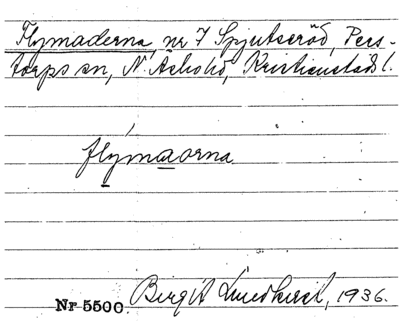 Flymaderna, nr 7 Spjutseröd, Pers-
torps sn, N. Åsbo hd, Kristianstads l.
flýmaorna
Nr 5500 Birgit Lundkvist, 1936.